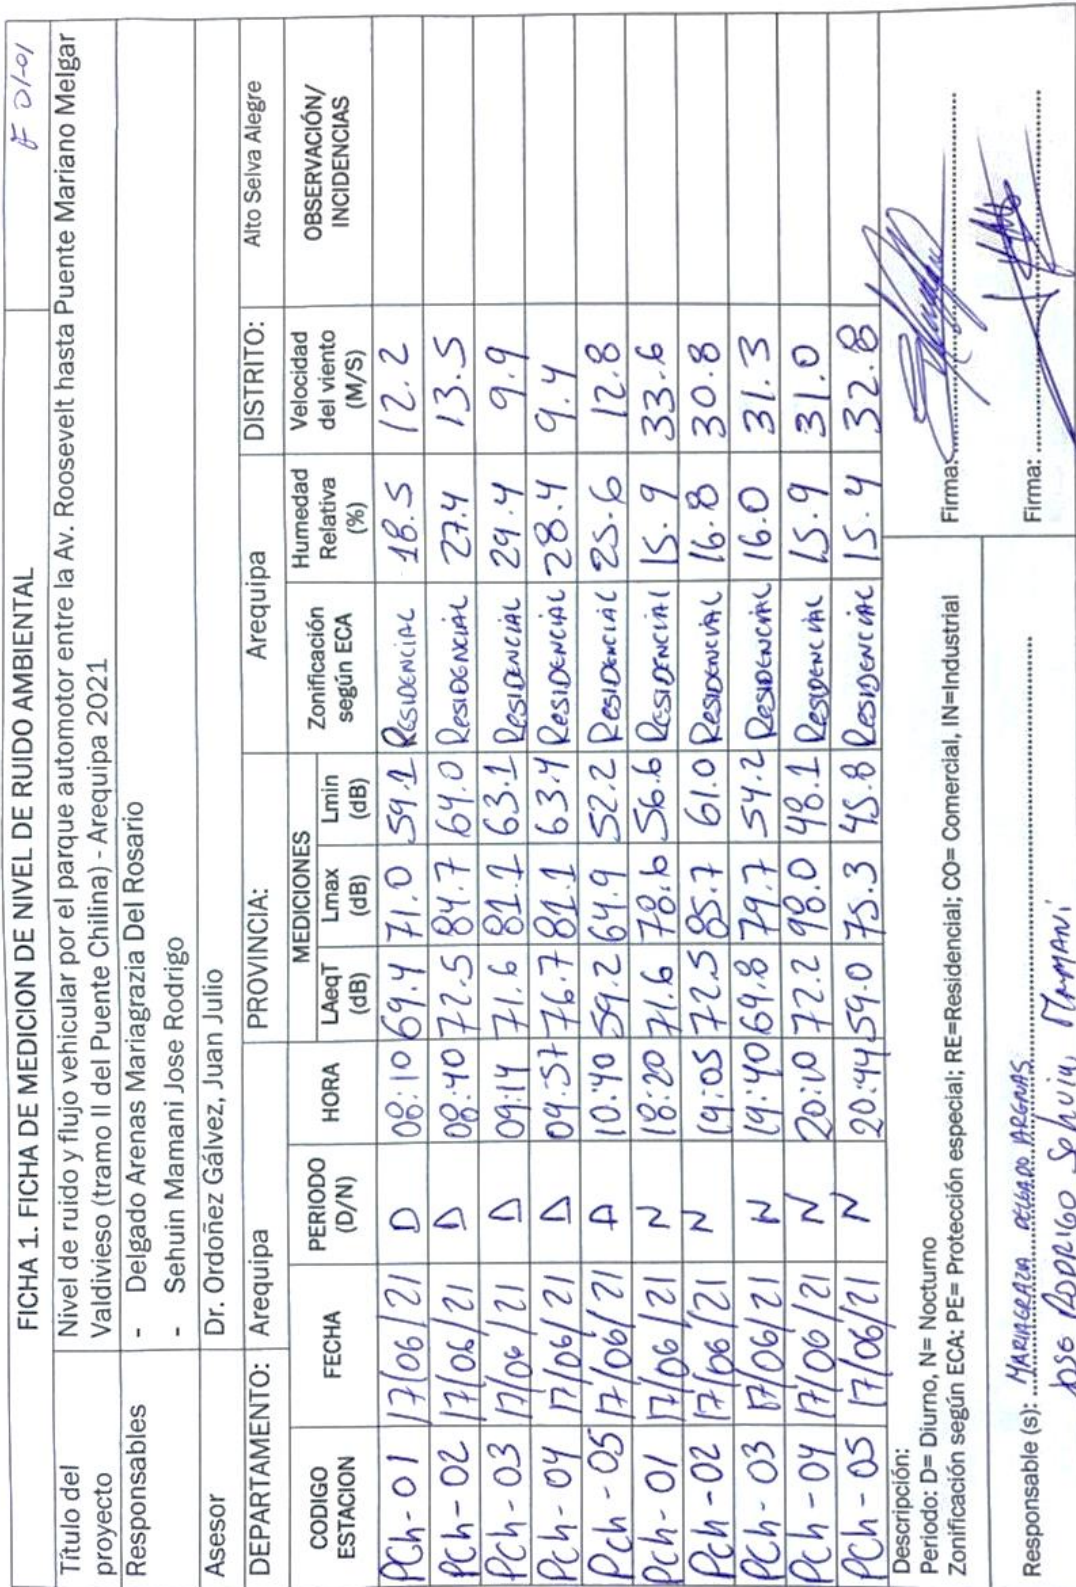 FICHA 1. FICHA DE MEDICION DE NIVEL DE RUIDO AMBIENTAL
F 01-01
Título del proyecto
Nivel de ruido y flujo vehicular por el parque automotor entre la Av. Roosevelt hasta Puente Mariano Melgar
Valdivieso (tramo II del Puente Chilina) - Arequipa 2021
Responsables
- Delgado Arenas Mariagrazia Del Rosario
- Sehuin Mamani Jose Rodrigo
Asesor Dr. Ordoñez Gálvez, Juan Julio
DEPARTAMENTO: Arequipa PROVINCIA: Arequipa DISTRITO: Alto Selva Alegre
CODIGO ESTACION FECHA PERIODO (D/N) HORA MEDICIONES LAeqT (dB) Lmax (dB) Lmin (dB) Zonificación según ECA Humedad Relativa (%) Velocidad del viento (M/S) OBSERVACIÓN/ INCIDENCIAS
PCh-01 17/06/21 D 08:10 69.4 71.0 59.1 Residencial 18.5 12.2
PCh-02 17/06/21 D 08:40 72.5 84.7 64.0 Residencial 27.4 13.5
PCh-03 17/06/21 D 09:14 71.6 81.1 63.1 Residencial 29.4 9.9
PCh-04 17/06/21 D 09:57 76.7 81.1 63.4 Residencial 28.4 9.4
PCh-05 17/06/21 D 10:40 59.2 64.9 52.2 Residencial 25.6 12.8
PCh-01 17/06/21 N 18:20 71.6 78.6 56.6 Residencial 15.9 33.6
PCh-02 17/06/21 N 19:05 72.5 85.7 61.0 Residencial 16.8 30.8
PCh-03 17/06/21 N 19:40 69.8 79.7 54.2 Residencial 16.0 31.3
PCh-04 17/06/21 N 20:10 72.2 98.0 48.1 Residencial 15.9 31.0
PCh-05 17/06/21 N 20:44 59.0 75.3 45.8 Residencial 15.4 32.8
Descripción:
Periodo: D= Diurno, N= Nocturno
Zonificación según ECA: PE= Protección especial; RE=Residencial; CO= Comercial, IN=Industrial
Firma:
Responsable (s): MARIAGRAZIA DELGADO ARENAS
JOSE RODRIGO Sehuin MAMANI
Firma: